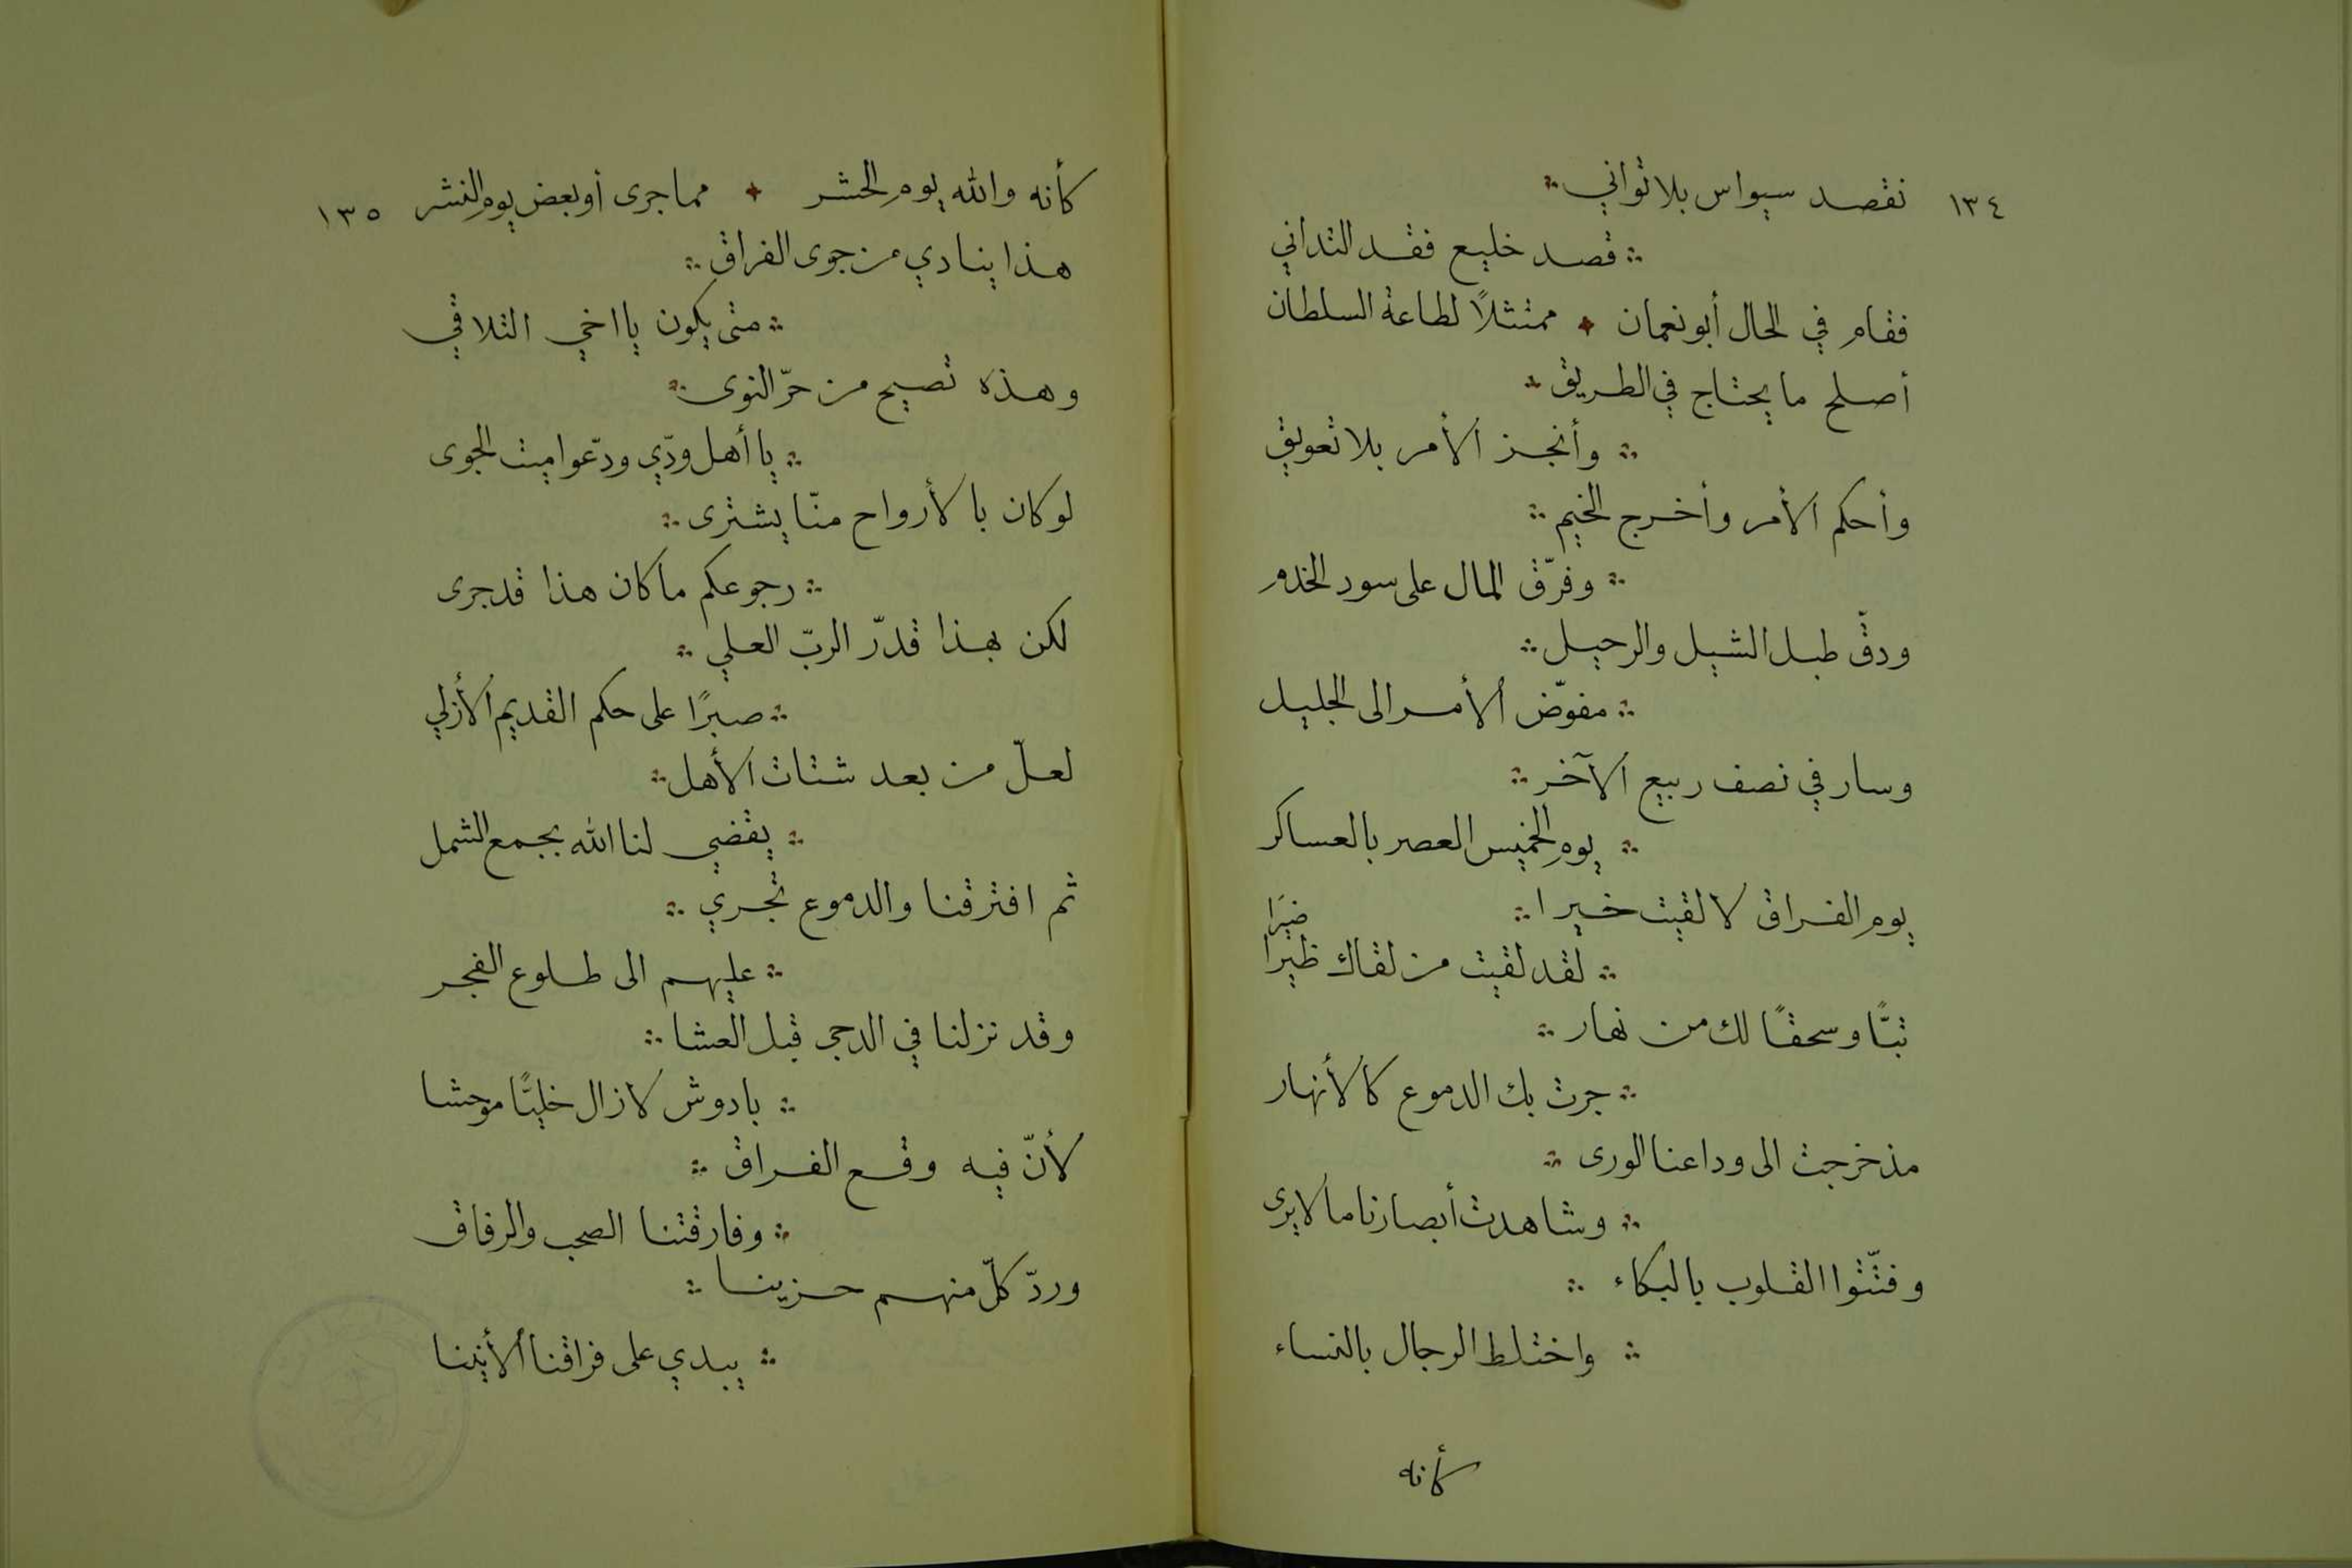 ١٣٤ نقصد سيواس بلا تواني
قصد خليع فقد التداني
فقام في الحال أبو نعمان ممتثلاً لطاعة السلطان
أصلح ما يحتاج في الطريق
وأنجز الأمر بلا تعويق
وأحكم الأمر وأخرج الخيم
وفرّق المال على سود الخدم
ودقّ طبل الشيل والرحيل
مفوّض الأمر الى الجليل
وسار في نصف ربيع الآخر
يوم الخميس العصر بالعساكر
يوم الفراق لا لقيت خيرا
ضيرًا
لقد لقيت من لقاك ظيرا
تبًّا وسحقًا لك من نهار
جرت بك الدموع كالأنهار
مذ خرجت الى وداعنا الورى
وشاهدت أبصارنا ما لا يرى
وفتّتوا القلوب بالبكاء
واختلط الرجال بالنساء
كأنه
كأنه والله يوم الحشر مما جرى أو بعض يوم النشر ١٣٥
هذا ينادي من جوى الفراق
متى يكون يا اخي التلاقي
وهذه تصيح من حرّ النوى
يا أهل ودّي ودّعوا ميت الجوى
لو كان بالأرواح منّا يشترى
رجوعكم ما كان هذا قد جرى
لكن بهذا قدّر الربّ العلي
صبرًا على حكم القديم الأزلي
لعلّ من بعد شتات الأهل
يقضي لنا الله بجمع الشمل
ثم افترقنا والدموع تجري
عليهم الى طلوع الفجر
وقد نزلنا في الدجى قبل العشا
بادوش لا زال خليًّا موحشا
لأنّ فيه وقع الفراق
وفارقتنا الصحب والرفاق
وردّ كلّ منهم حزينا
يبدي على فراقنا الأنينا